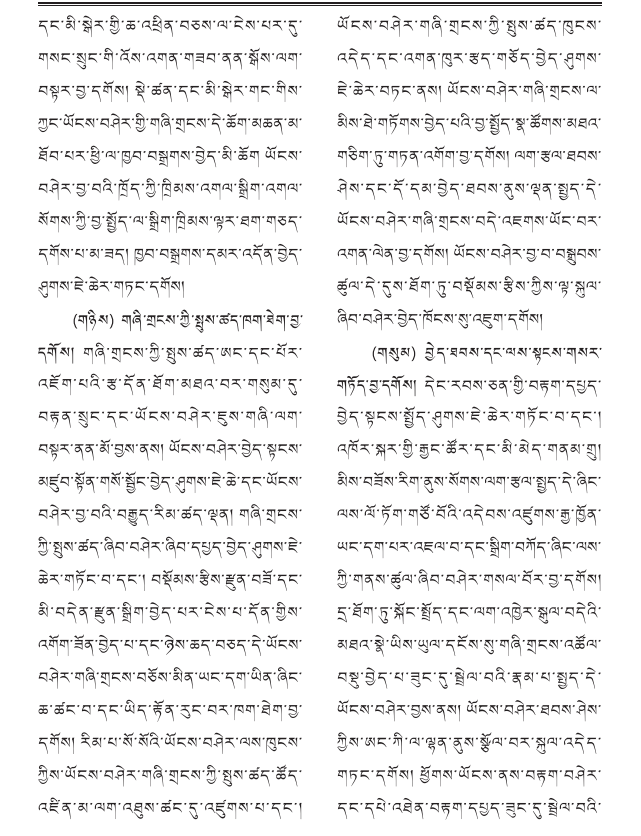 དང་མི་སྒེར་གྱི་ཆ་འཕྲིན་བཅས་ལ་ངེས་པར་དུ་
གསང་སྲུང་གི་འོས་འགན་གཟབ་ནན་སྒོས་ལག་
བསྟར་བྱ་དགོས། སྡེ་ཚན་དང་མི་སྒེར་གང་གིས་
ཀྱང་ཡོངས་བཤེར་གྱི་གཞི་གྲངས་དེ་ཆོག་མཆན་མ་
ཐོབ་པར་ཕྱི་ལ་ཁྱབ་བསྒྲགས་བྱེད་མི་ཆོག ཡོངས་
བཤེར་བྱ་བའི་ཁྲོད་ཀྱི་ཁྲིམས་འགལ་སྒྲིག་འགལ་
སོགས་ཀྱི་བྱ་སྤྱོད་ལ་སྒྲིག་ཁྲིམས་ལྟར་ཐག་གཅད་
དགོས་པ་མ་ཟད། ཁྱབ་བསྒྲགས་དམར་འདོན་བྱེད་
ཤུགས་ཇེ་ཆེར་གཏང་དགོས།
(གཉིས) གཞི་གྲངས་ཀྱི་སྤུས་ཚད་ཁག་ཐེག་བྱ་
དགོས། གཞི་གྲངས་ཀྱི་སྤུས་ཚད་ཨང་དང་པོར་
འཇོག་པའི་རྩ་དོན་ཐོག་མཐའ་བར་གསུམ་དུ་
བརྟན་སྲུང་དང་ཡོངས་བཤེར་ཇུས་གཞི་ལག་
བསྟར་ནན་མོ་བྱས་ནས། ཡོངས་བཤེར་བྱེད་སྟངས་
མཛུབ་སྟོན་གསོ་སྦྱོང་བྱེད་ཤུགས་ཇེ་ཆེ་དང་ཡོངས་
བཤེར་བྱ་བའི་བརྒྱུད་རིམ་ཚད་ལྡན། གཞི་གྲངས་
ཀྱི་སྤུས་ཚད་ཞིབ་བཤེར་ཞིབ་དཔྱད་བྱེད་ཤུགས་ཇེ་
ཆེར་གཏོང་བ་དང་། བསྡོམས་རྩིས་རྫུན་བཟོ་དང་
མི་བདེན་རྫུན་སྒྲིག་བྱེད་པར་ངེས་པ་དོན་གྱིས་
འགོག་ཟོན་བྱེད་པ་དང་ཉེས་ཆད་བཅད་དེ་ཡོངས་
བཤེར་གཞི་གྲངས་བཅོས་མིན་ཡང་དག་ཡིན་ཞིང་
ཆ་ཚང་བ་དང་ཡིད་རྟོན་རུང་བར་ཁག་ཐེག་བྱ་
དགོས། རིམ་པ་སོ་སོའི་ཡོངས་བཤེར་ལས་ཁུངས་
ཀྱིས་ཡོངས་བཤེར་གཞི་གྲངས་ཀྱི་སྤུས་ཚད་ཚོད་
འཛིན་མ་ལག་འཐུས་ཚང་དུ་འཛུགས་པ་དང་།
ཡོངས་བཤེར་གཞི་གྲངས་ཀྱི་སྤུས་ཚད་ཁུངས་
འདེད་དང་འགན་ཁུར་རྩད་གཅོད་བྱེད་ཤུགས་
ཇེ་ཆེར་བཏང་ནས། ཡོངས་བཤེར་གཞི་གྲངས་ལ་
མིས་ཐེ་གཏོགས་བྱེད་པའི་བྱ་སྤྱོད་སྣ་ཚོགས་མཐའ་
གཅིག་ཏུ་གཏན་འགོག་བྱ་དགོས། ལག་རྩལ་ཐབས་
ཤེས་དང་དོ་དམ་བྱེད་ཐབས་ནུས་ལྡན་སྤྱད་དེ་
ཡོངས་བཤེར་གཞི་གྲངས་བདེ་འཇགས་ཡོང་བར་
འགན་ལེན་བྱ་དགོས། ཡོངས་བཤེར་བྱ་བ་བསྒྲུབས་
ཚུལ་དེ་དུས་ཐོག་ཏུ་བསྡོམས་རྩིས་ཀྱིས་ལྟ་སྐུལ་
ཞིབ་བཤེར་བྱེད་ཁོངས་སུ་འཇུག་དགོས།
(གསུམ) བྱེད་ཐབས་དང་ལས་སྟངས་གསར་
གཏོད་བྱ་དགོས། དེང་རབས་ཅན་གྱི་བརྟག་དཔྱད་
བྱེད་སྟངས་སྤྱོད་ཤུགས་ཇེ་ཆེར་གཏོང་བ་དང་།
འཁོར་སྐར་གྱི་རྒྱང་ཚོར་དང་མི་མེད་གནམ་གྲུ།
མིས་བཟོས་རིག་ནུས་སོགས་ལག་རྩལ་སྤྱད་དེ་ཞིང་
ལས་ལོ་ཏོག་གཙོ་བོའི་འདེབས་འཛུགས་རྒྱ་ཁྱོན་
ཡང་དག་པར་འཇལ་བ་དང་སྒྲིག་བཀོད་ཞིང་ལས་
ཀྱི་གནས་ཚུལ་ཞིབ་བཤེར་གསལ་བོར་བྱ་དགོས།
དྲ་ཐོག་ཏུ་སྐོང་སྤྲོད་དང་ལག་འཁྱེར་སྒུལ་བདེའི་
མཐའ་སྣེ་ཡིས་ཡུལ་དངོས་སུ་གཞི་གྲངས་འཚོལ་
བསྡུ་བྱེད་པ་ཟུང་དུ་སྦྲེལ་བའི་རྣམ་པ་སྤྱད་དེ་
ཡོངས་བཤེར་བྱས་ནས། ཡོངས་བཤེར་ཐབས་ཤེས་
ཀྱིས་ཨང་ཀི་ལ་ལྟན་ནུས་སྩོལ་བར་སྐུལ་འདེད་
གཏང་དགོས། ཕྱོགས་ཡོངས་ནས་བརྟག་བཤེར་
དང་དཔེ་འཐེན་བརྟག་དཔྱད་ཟུང་དུ་སྦྲེལ་བའི་